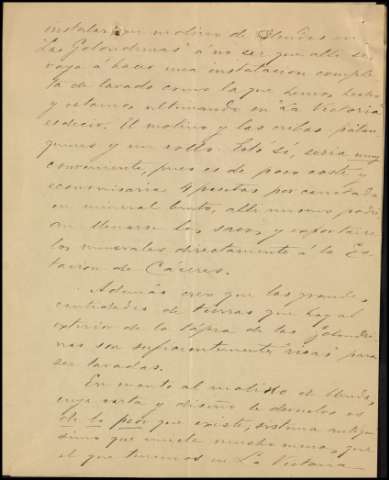 instalar un molino de Blendes en
"Las Golondrinas" á no ser que allí se
vaya á hacer una instalacion comple
ta de lavado como la que hemos hecho
y estamos ultimando en "La Victoria"
es decir. El molino y las cribas
y un rollo. Esto sí, seria muy
conveniente, pues es de poco coste y
economisaria 4 pesetas por carretada
en mineral bruto, allí mismo podri
an llenarse los sacos y exportarse
los minerales directamente á la Es
tacion de Cáceres.
Además creo que las grandes
cantidades de tierras que hay al
exterior de la tápia de las Golondri
nas son suficientemente ricas para
ser lavadas.
En cuanto al molino de
cuya carta y diseño le devuelvo es
de lo peor que existe, sistema antiqui
simo que muele mucho menos que
el que tenemos en La Victoria